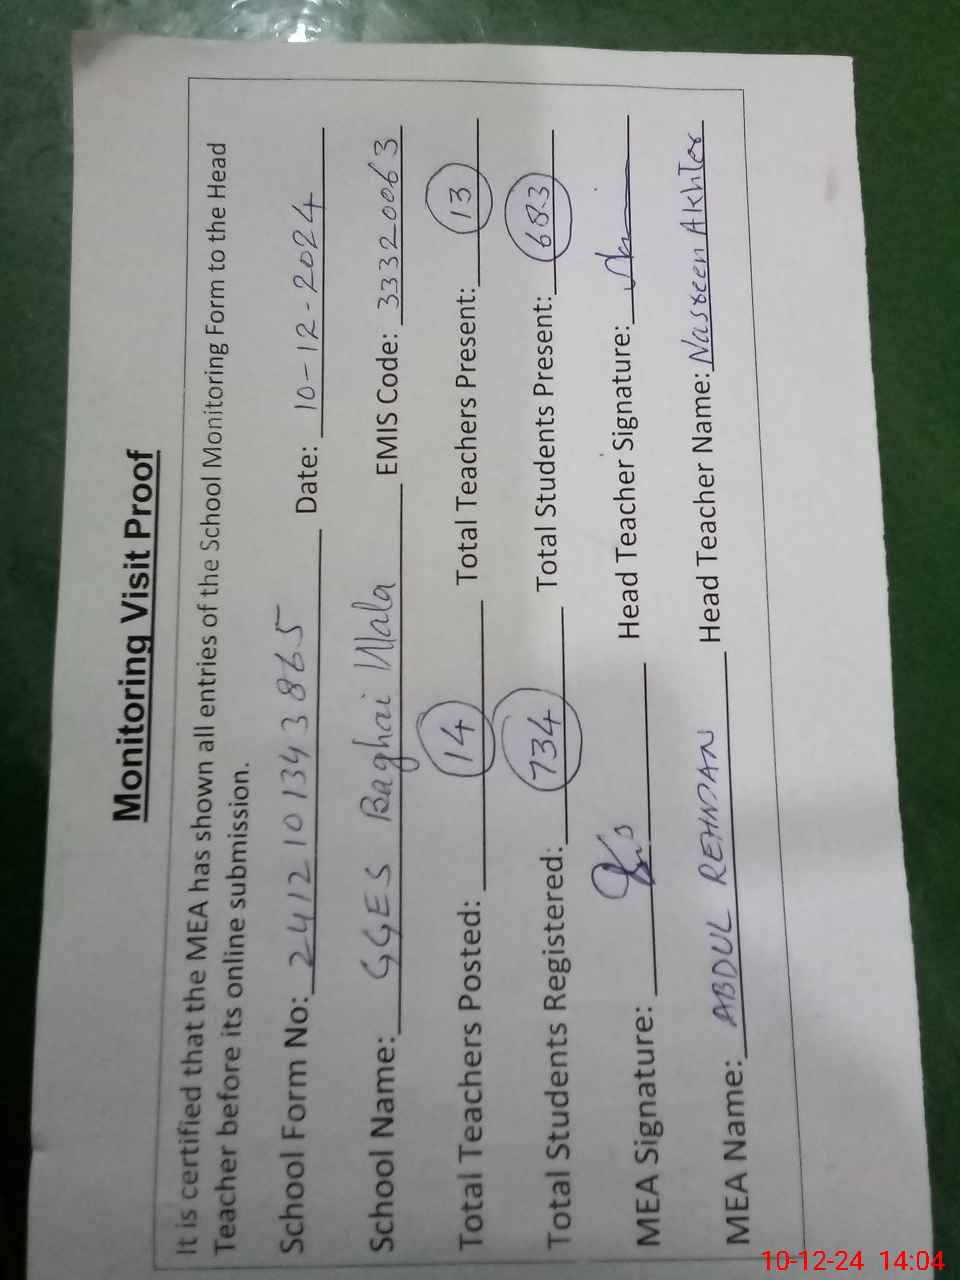 Monitoring Visit Proof
It is certified that the MEA has shown all entries of the School Monitoring Form to the Head
Teacher before its online submission.
School Form No: 2412101343865 Date: 10-12-2024
School Name: GGES Baghai Wala EMIS Code: 33320063
Total Teachers Posted: 14 Total Teachers Present: 13
Total Students Registered: 734 Total Students Present: 683
MEA Signature: Head Teacher Signature:
MEA Name: ABDUL REHMAN Head Teacher Name: Nasreen Akhter
10-12-24 14:04